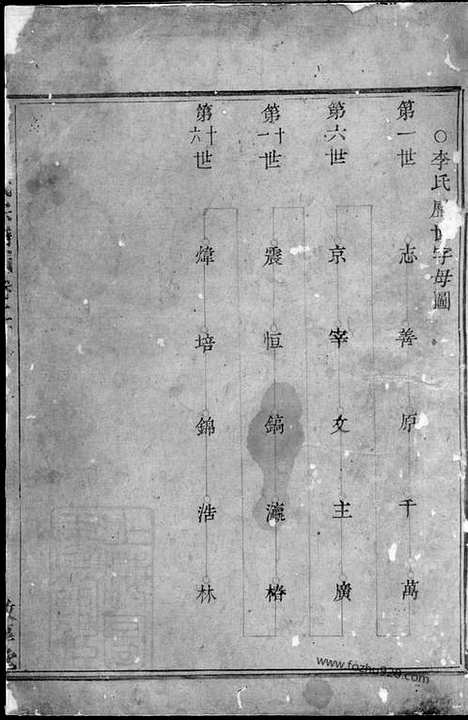 ○李氏歷世字母圖
第一世 志 善 原 千 萬
第六世 京 宰 文 主 廣
第十一世 震 恒 鎬 瀛 椿
第十六世 煒 培 錦 浩 林
www.fozhu920.com